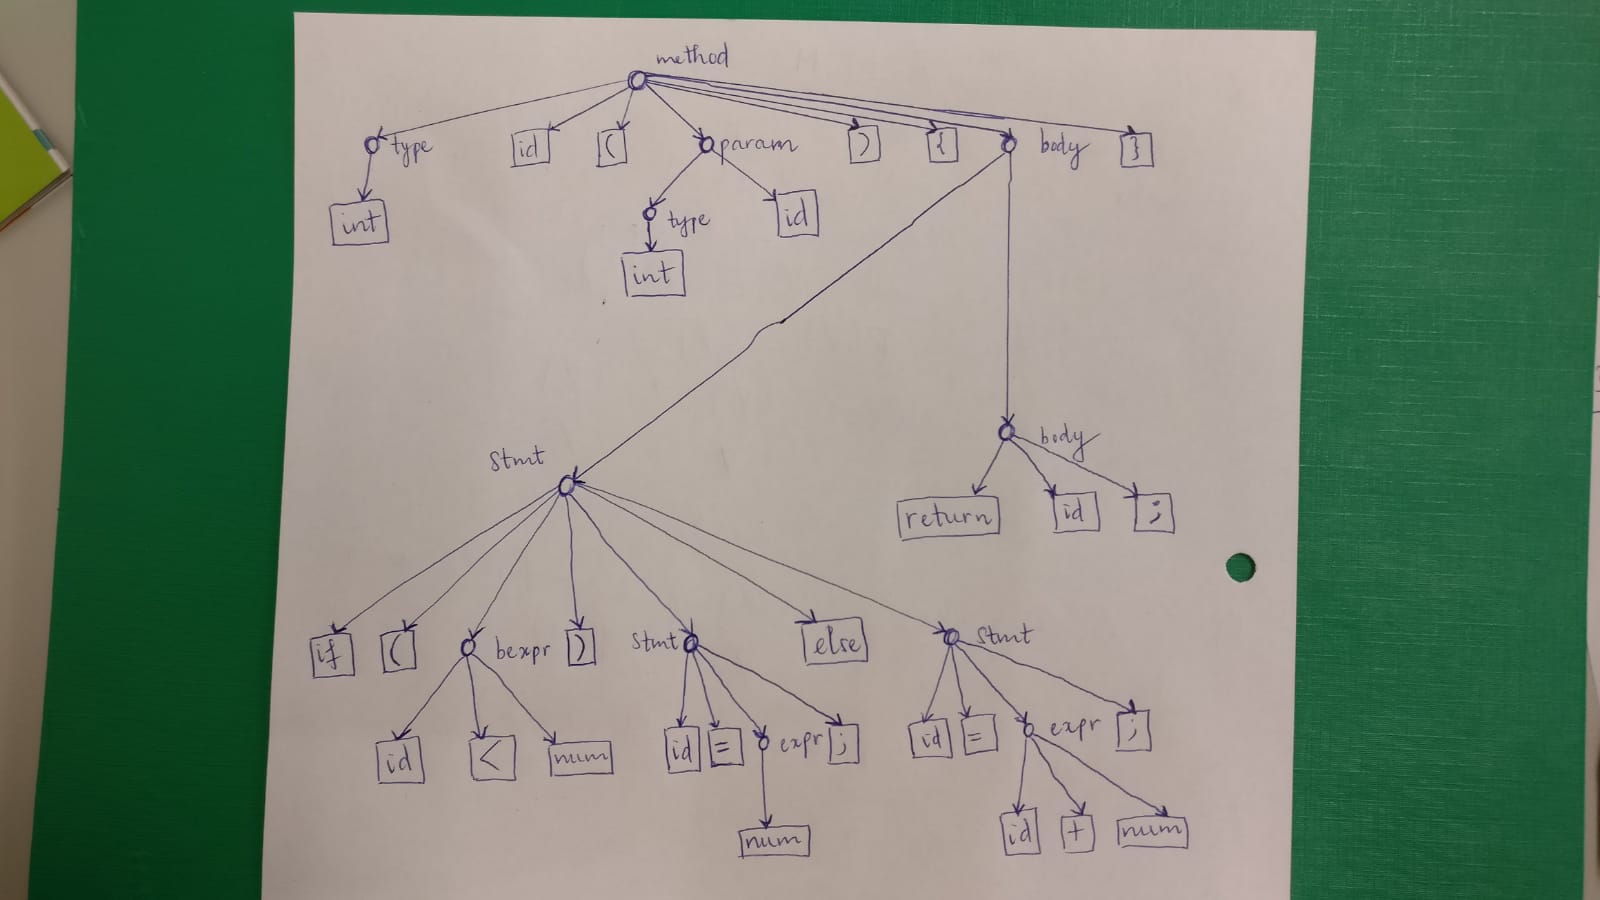 method
type id ( param ) { body }
int type id
int
Stmt body
return id ;
if ( bexpr ) Stmt else Stmt
id < num id = expr ; id = expr ;
num id + num